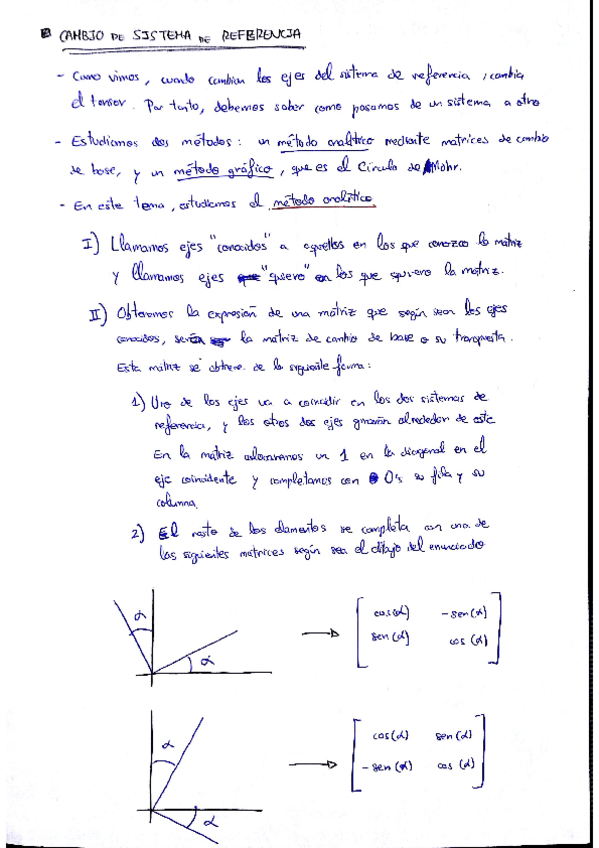 CAMBIO DE SISTEMA DE REFERENCIA
- Como vimos, cuando cambian los ejes del sistema de referencia, cambia
el tensor. Por tanto, debemos saber como pasamos de un sistema a otro
- Estudiamos dos métodos: un método analítico mediante matrices de cambio
de base, y un método gráfico, que es el Círculo de Mohr.
- En este tema, estudiamos el método analítico
I) Llamamos ejes "conocidos" a aquellos en los que conozco la matriz
y llamamos ejes "quiero" en los que quiero la matriz.
II) Obtenemos la expresión de una matriz que según sean los ejes
conocidos, será la matriz de cambio de base o su transpuesta.
Esta matriz se obtiene de la siguiente forma:
1) Uno de los ejes va a coincidir en los dos sistemas de
referencia, y los otros dos ejes girarán alrededor de este
En la matriz colocaremos un 1 en la diagonal en el
eje coincidente y completamos con 0's su fila y su
columna.
2) El resto de los elementos se completa con una de
las siguientes matrices según sea el dibujo del enunciado
α
α
cos(α) -sen(α)
sen(α) cos(α)
α
α
cos(α) sen(α)
-sen(α) cos(α)